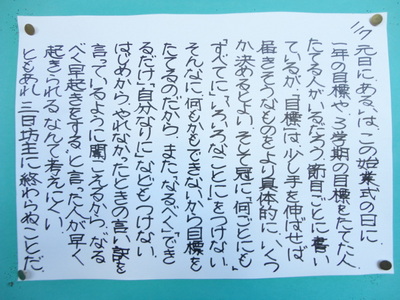 1/7 元日にあるいは、この始業式の日に、
一年の目標や3学期の目標をたてた人、
たてる人がいるだろう。節目ごとに書い
ているが、目標は、少し手を伸ばせば、
届きそうなものをより具体的に、いくつ
か決めるとよい。そして冠に「何ごとにも」
「すべてに」「いろいろなことに」をつけない。
そんなに何もかもできないから目標を
たてるのだから。また、「なるべく」「でき
るだけ」「自分なりに」などもつけない。
はじめから、やれなかったときの言い訳を
言っているように聞こえるから。「なる
べく早起きをする」と言った人が早く
起きられるなんて考えにくい。
ともあれ三日坊主に終わらぬことだ。